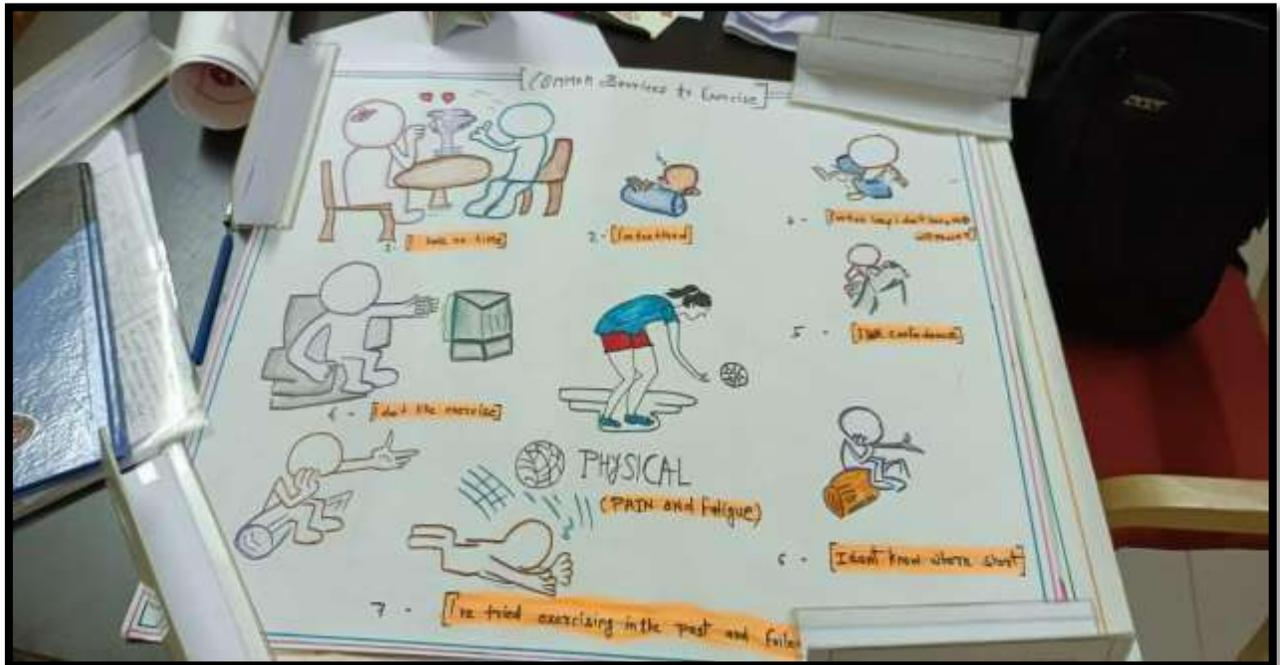 [Common Barriers to Exercise]
1. [I have no time]
2- [I'm too tired]
[I'm too busy i don't have
5 - [I confidence]
4 - [I don't like exercise]
PHYSICAL
(PAIN and Fatigue)
6 - [I don't know where start]
7 - [I've tried exercising in the past and faile
acer